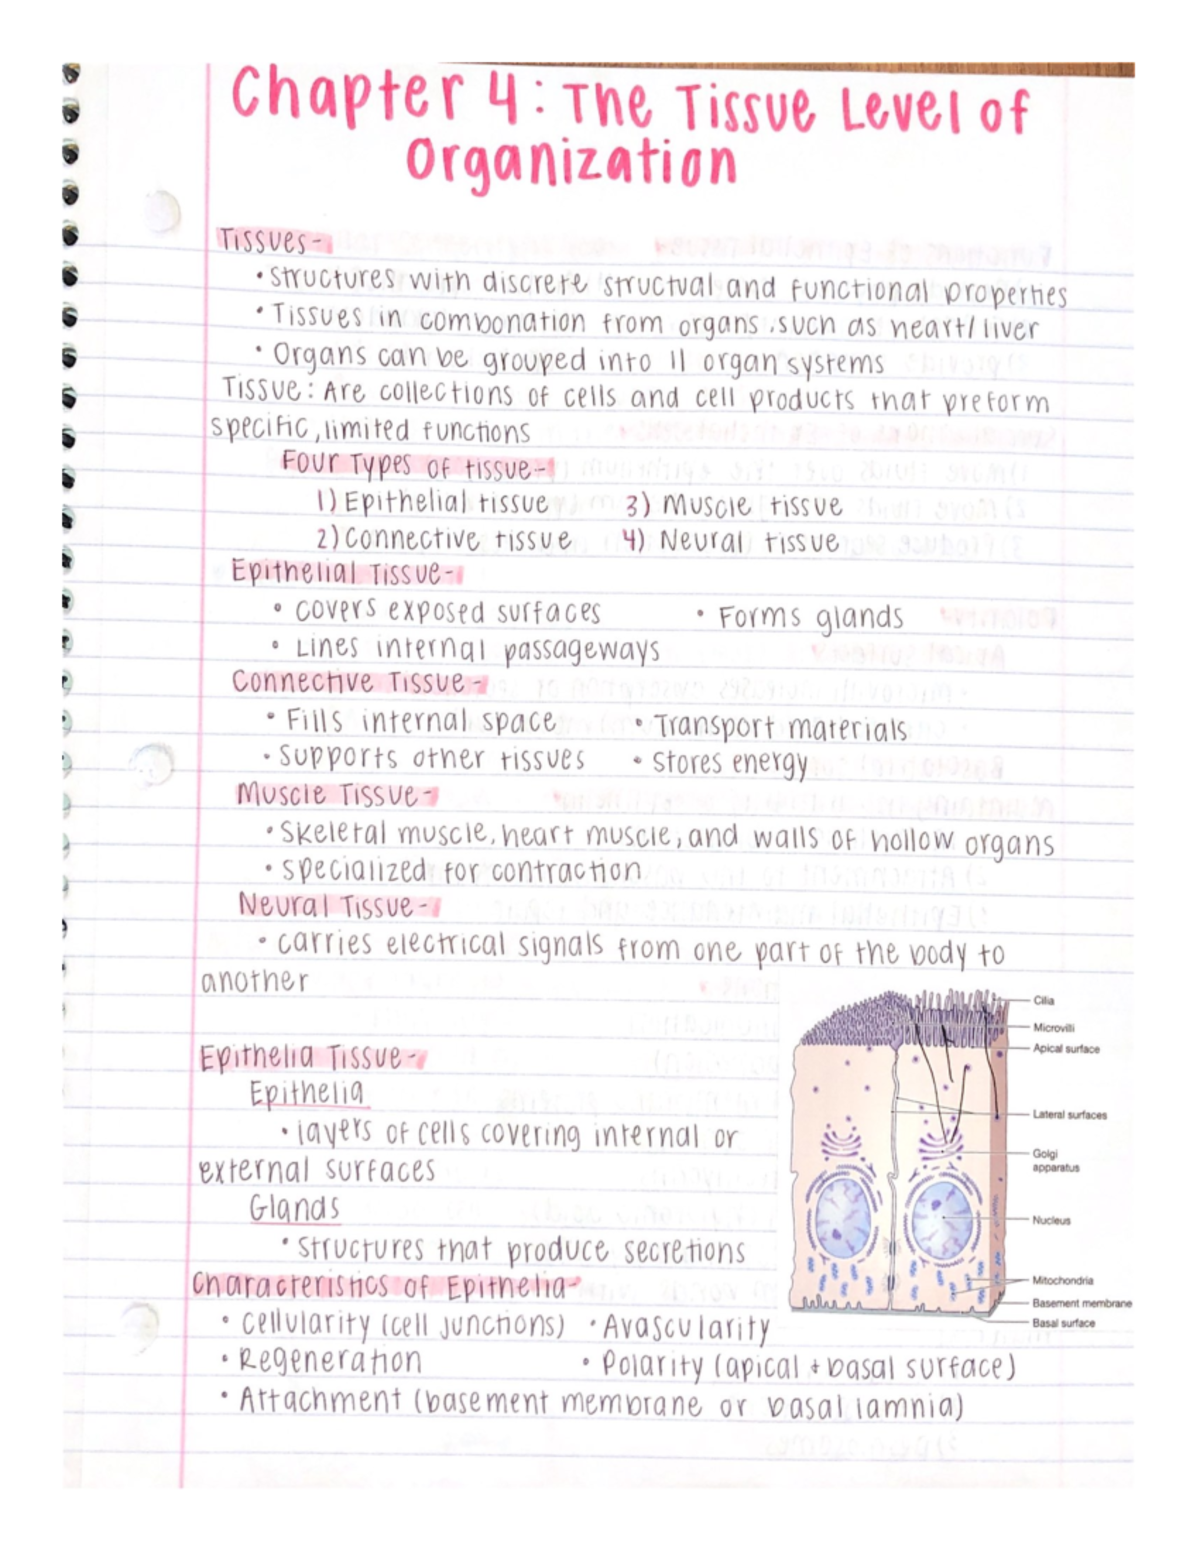 Chapter 4: The Tissue Level of
Organization
Tissues-
• Structures with discrete structual and functional properties
• Tissues in combonation from organs, such as heart/liver
• Organs can be grouped into 11 organ systems
Tissue: Are collections of cells and cell products that preform
specific, limited functions
Four Types of tissue-
1) Epithelial tissue 3) Muscle tissue
2) Connective tissue 4) Neural tissue
Epithelial Tissue-
• covers exposed surfaces • Forms glands
• Lines internal passageways
Connective Tissue-
• Fills internal space • Transport materials
• Supports other tissues • Stores energy
Muscle Tissue-
• Skeletal muscle, heart muscle, and walls of hollow organs
• specialized for contraction
Neural Tissue-
• carries electrical signals from one part of the body to
another
Cilia
Microvilli
Apical surface
Lateral surfaces
Golgi
apparatus
Nucleus
Mitochondria
Basement membrane
Basal surface
Epithelia Tissue-
Epithelia
• layers of cells covering internal or
external surfaces
Glands
• Structures that produce secretions
Characteristics of Epithelia-
• Cellularity (cell junctions) • Avascularity
• Regeneration • Polarity (apical + basal surface)
• Attachment (basement membrane or basal lamnia)